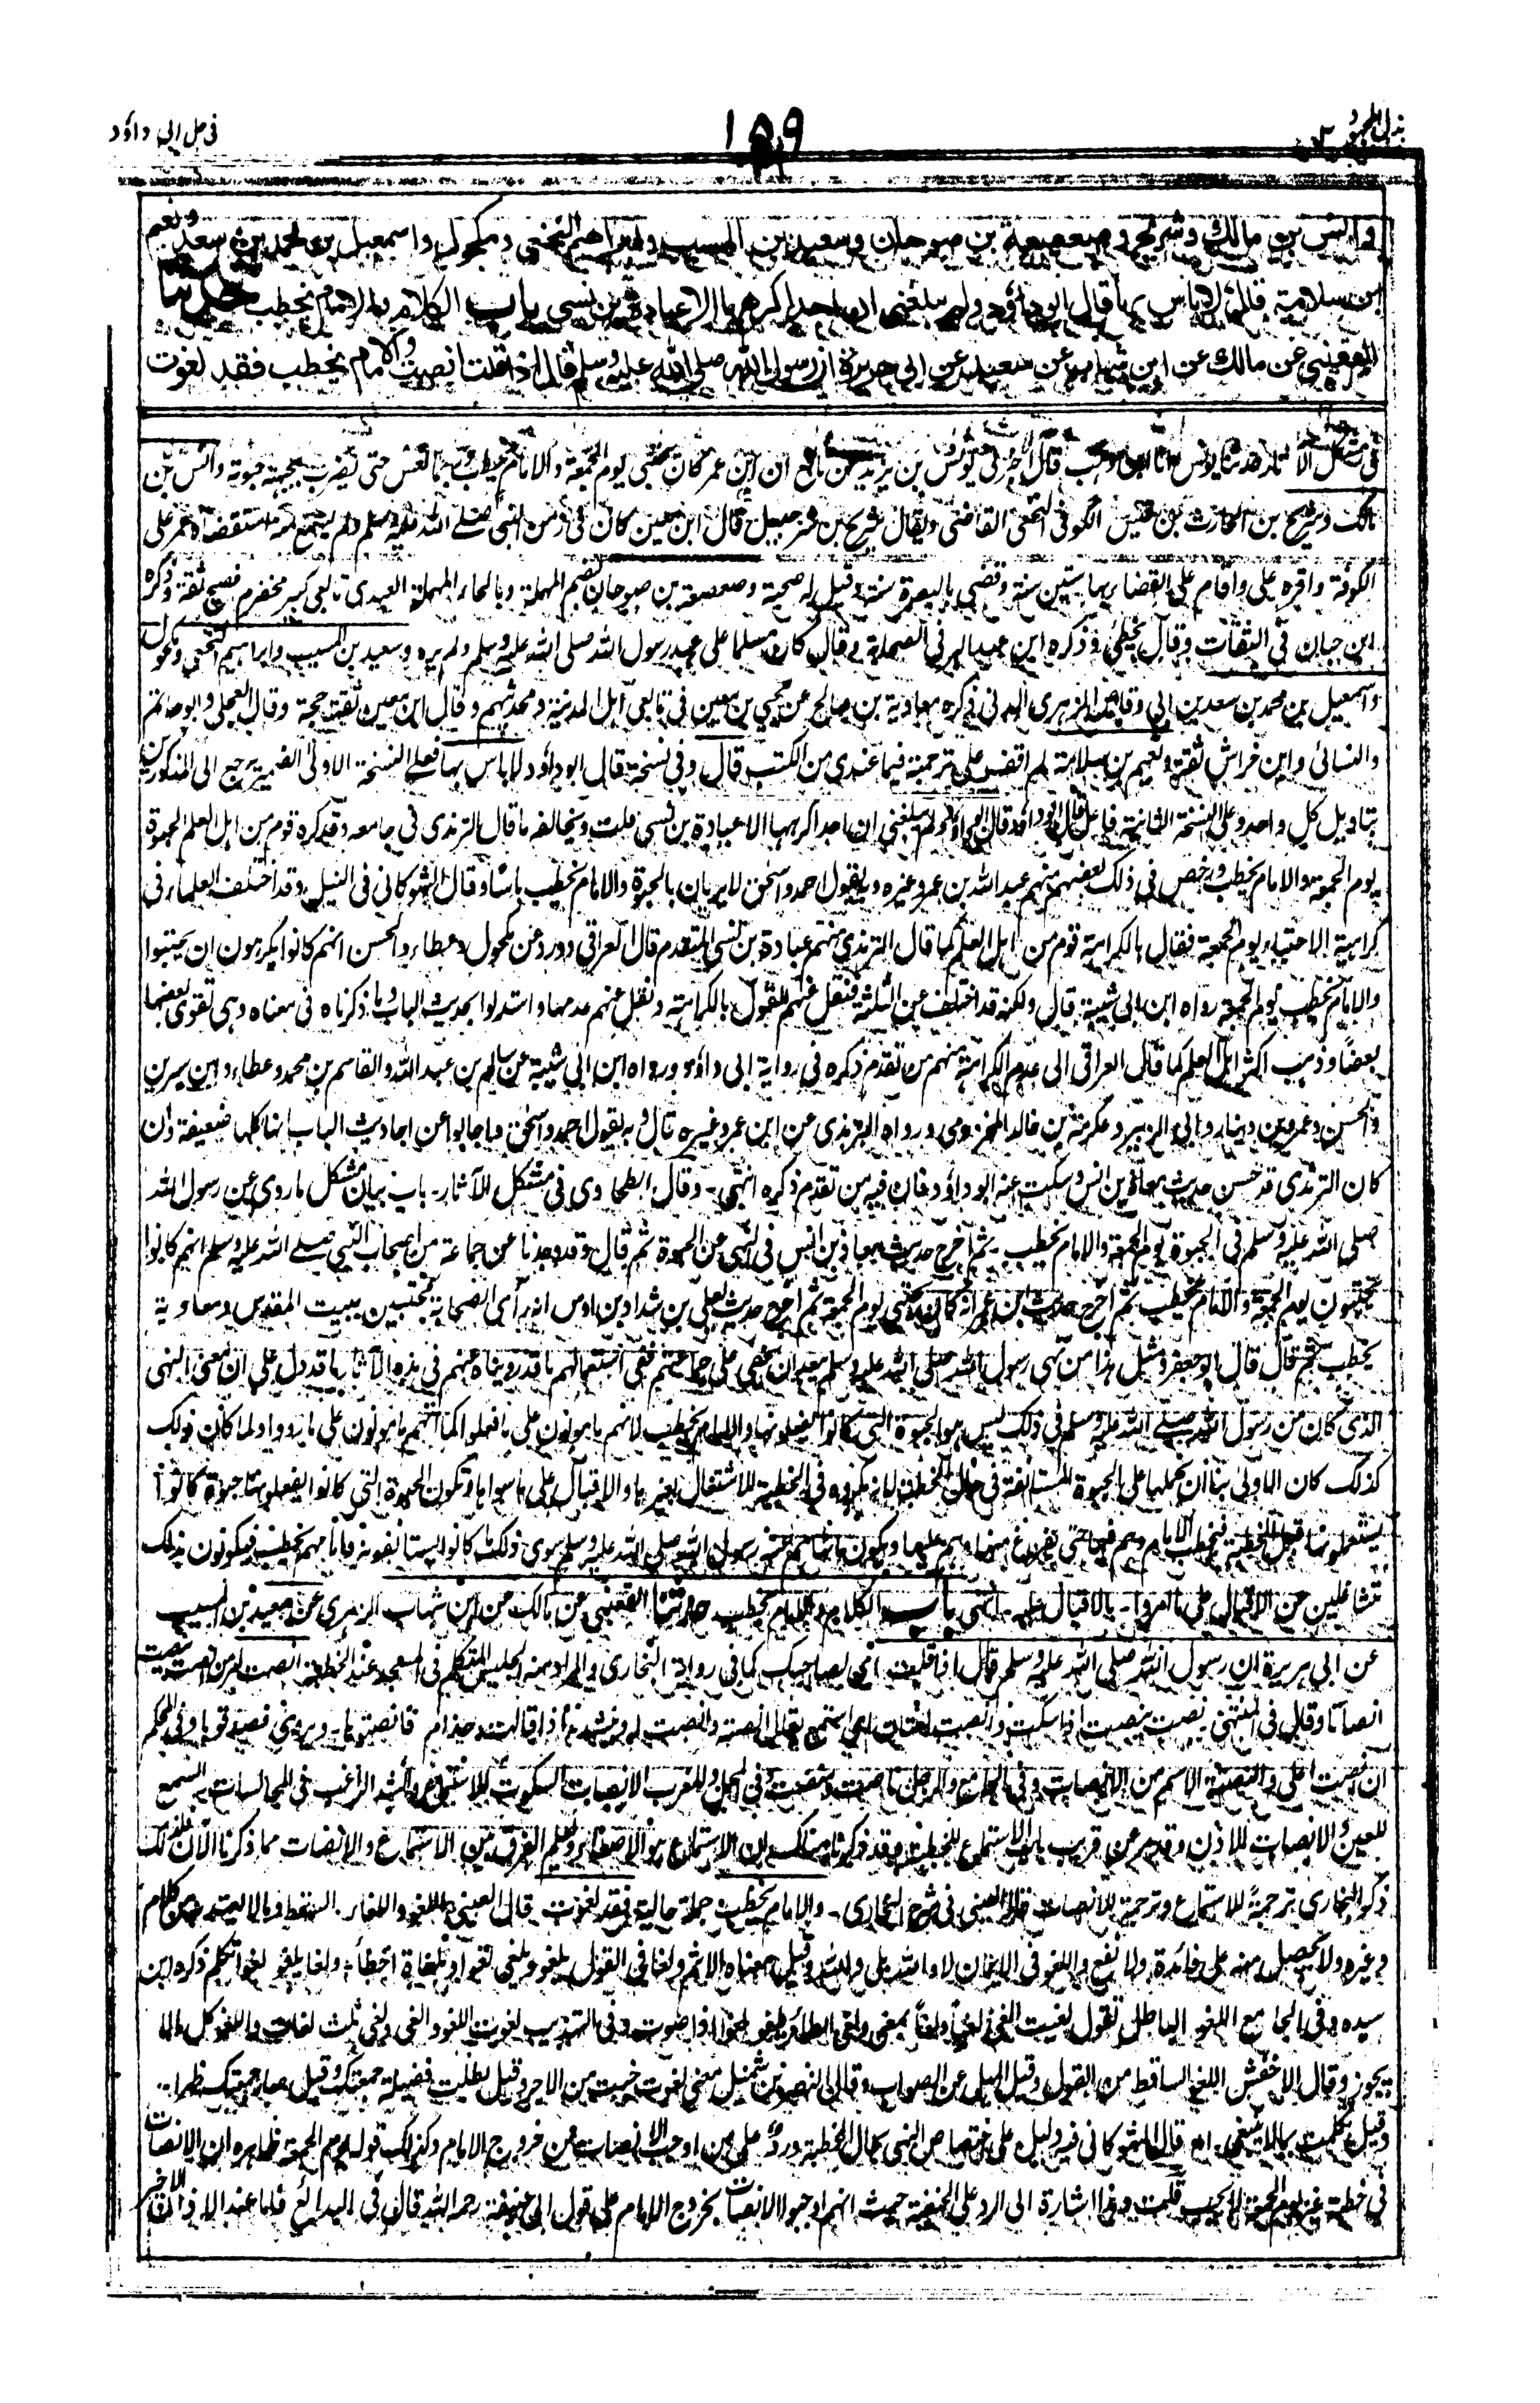 بذل المجهود ٢
١٥٩
في حل ابي داؤد
وانس بن مالك وشريح وصعصعة بن صوحان وسعيد بن المسيب وابراهيم النخعي ومكحول واسمعيل بن محمد بن سعد ونعيم
بن سلامة قال لا باس بها قال ابو داؤد ولم يبلغني ان احدا كرهها الا عبادة بن نسي باب الكلام والامام يخطب حدثنا
القعنبي عن مالك عن ابن شهاب عن سعيد عن ابي هريرة ان رسول الله صلى الله عليه وسلم قال اذا قلت انصت والامام يخطب فقد لغوت
في مشكل الآثار حدثنا يونس انا ابن وهب قال اخبرني يونس بن يزيد عن نافع ان ابن عمر كان يحتبي يوم الجمعة والامام يخطب ربما نعس حتى يضرب بجبهته حبوته وانس بن
مالك وشريح بن الحارث بن قيس الكوفي النخعي القاضي ويقال شريح بن شرحبيل قال ابن معين كان في زمن النبي صلى الله عليه وسلم ولم يسمع منه استقضاه عمر على
الكوفة واقره علي واقام على القضاء بها ستين سنة وقضى بالبصرة سنة وقيل له صحبة وصعصعة بن صوحان بضم المهملة وبالحاء المهملة العبدي تابعي كبير مخضرم فصيح ثقة وذكره
ابن حبان في الثقات وقال يخطئ وذكره ابن عبد البر في الصحابة وقال كان مسلما على عهد رسول الله صلى الله عليه وسلم ولم يره وسعيد بن المسيب وابراهيم النخعي ومكحول
واسمعيل بن محمد بن سعد بن ابي وقاص الزهري المدني ذكره معاوية بن صالح عن يحيى بن معين في تابعي اهل المدينة ومحدثيهم وقال ابن معين ثقة حجة وقال العجلي وابو حاتم
والنسائي وابن خراش ثقة ونعيم بن سلامة لم اقف على ترجمته فيما عندي من الكتب قال وفي نسخة قال ابو داؤد لا باس بها فعلى النسخة الاولى الضمير يرجع الى المذكورين
بتاويل كل واحد وعلى النسخة الثانية فاعل قال ابو داؤد قال ابو داؤد ولم يبلغني ان احدا كرهها الا عبادة بن نسي قلت ويخالفه ما قال الترمذي في جامعه وقد كره قوم من اهل العلم الحبوة
يوم الجمعة والامام يخطب ورخص في ذلك بعضهم منهم عبد الله بن عمر وغيره وبه يقول احمد واسحق لا يريان بالحبوة والامام يخطب باسًا وقال الشوكاني في النيل وقد اختلف العلماء في
كراهية الاحتباء يوم الجمعة فقال بالكراهة قوم من اهل العلم كما قال الترمذي منهم عبادة بن نسي المتقدم قال العراقي وورد عن مكحول وعطاء والحسن انهم كانوا يكرهون ان يحتبوا
والامام يخطب يوم الجمعة رواه ابن ابي شيبة قال ولكنه قد اختلف عن الثلثة فنقل عنهم القول بالكراهة ونقل عنهم عدمها واستدلوا بحديث الباب وما ذكرناه في معناه وهي تقوي بعضها
بعضًا وذهب اكثر اهل العلم كما قال العراقي الى عدم الكراهة منهم من تقدم ذكره في رواية ابي داؤد ورواه ابن ابي شيبة عن سالم بن عبد الله والقاسم بن محمد وعطاء وابن سيرين
والحسن وعمرو بن دينار وابي الزبير وعكرمة بن خالد المخزومي ورواه الترمذي عن ابن عمر وغيره قال وبه يقول احمد واسحق واجابوا عن احاديث الباب انها كلها ضعيفة وان
كان الترمذي قد حسن حديث معاذ بن انس وسكت عنه ابو داؤد فان فيه من تقدم ذكره انتهى ۔ وقال الطحاوي في مشكل الآثار ۔ باب بيان مشكل ما روي عن رسول الله
صلى الله عليه وسلم في الحبوة يوم الجمعة والامام يخطب ۔ ثم اخرج حديث معاذ بن انس في النهي عن الحبوة ثم قال وقد وجدنا عن جماعة من اصحاب النبي صلى الله عليه وسلم انهم كانوا
يحتبون يوم الجمعة والامام يخطب ثم اخرج حديث ابن عمر انه كان يحتبي يوم الجمعة ثم اخرج حديث يعلى بن شداد بن اوس انه رأى الصحابة محتبين ببيت المقدس ومعاوية
يخطب ثم قال قال ابو جعفر ومثل هذا من نهي رسول الله صلى الله عليه وسلم بعيد ان يخفى على جماعتهم ففي استعمالهم ما قد رويناه عنهم في هذه الآثار ما قد دل على ان معنى النهي
الذي كان من رسول الله صلى الله عليه وسلم في ذلك ليس هو الحبوة التي كانوا يفعلونها والامام يخطب لانهم مامونون على ما فعلوا كما انهم مامونون على ما رووا ولما كان ذلك
كذلك كان الاولى بنا ان نحملها على الحبوة المستانفة في حال الخطبة لانه مكروه في الخطبة الاشتغال بغيرها والاقبال على ما سواها وتكون الحبوة التي كانوا يفعلونها حبوة كانوا
يستعملونها قبل الخطبة فيخطب الامام وهم فيها حتى يفرغ منها وهم عليها ويكون ما نهاهم عنه رسول الله صلى الله عليه وسلم سوى ذلك كانوا يستانفونه وامامهم يخطب فيكونون بذلك
متشاغلين عن الاقبال على ما امروا ۔ بالاقبال عليه ۔ انتهى باب الكلام والامام يخطب حدثنا القعنبي عن مالك عن ابن شهاب الزهري عن سعيد بن المسيب
عن ابي هريرة ان رسول الله صلى الله عليه وسلم قال اذا قلت اي لصاحبك كما في رواية البخاري والمراد منه الجليس المتكلم في المسجد عند الخطبة انصت امر من انصت ينصت
انصاتا وقال في المنتهى نصت ينصت اذا سكت وانصت لغتان اي استمع يقال انصته وانصت له وينشد اذا قالت حذام فانصتوها ۔ ويروى فصدقوها وفي المحكم
ان انصت اعلى والنصتة الاسم من الانصات وفي الجامع والرجل ناصت ومنصت وفي المجمل والمغرب الانصات السكوت للاستماع وانشد الراغب في المجالسات السمع
للعين والانصات للاذن وقد مر عن قريب باب الاستماع للخطبة وقد ذكرنا هناك ان الاستماع هو الاصغاء ويعلم الفرق بين الاستماع والانصات مما ذكرنا الآن فلذلك
ذكر البخاري ترجمةً للاستماع وترجمة للانصات قاله العيني في شرح البخاري ۔ والامام يخطب جملة حالية فقد لغوت قال العيني اللغو واللغاء السقط وما لا يعتد به من كلام
وغيره ولا يحصل منه على فائدة ولا نفع واللغو في الايمان لا والله بلى والله وقيل معناه الاثم ولغا في القول يلغو ويلغى لغوا وملغاة اخطأ ولغا يلغو لغوا تكلم ذكره ابن
سيده وفي الجامع اللغو الباطل تقول لغيت الغى لغيا ولغا بمعنى ولغى الطائر يلغو لغوا اذا صوت وفي التهذيب لغوت اللغو والغى ولغى ثلث لغات واللغو كل ما لا
يجوز وقال الاخفش اللغو الساقط من القول وقيل الميل عن الصواب وقال النضر بن شميل معنى لغوت خبت من الاجر وقيل بطلت فضيلة جمعتك وقيل صارت جمعتك ظهرا
وقيل تكلمت بما لا ينبغي ۔ اھ قال الشوكاني فيه دليل على اختصاص النهي بحال الخطبة ورد على من اوجب الانصات من خروج الامام وكذلك قوله يوم الجمعة ظاهره ان الانصات
في خطبة غير يوم الجمعة لا يجب قلت وهذا اشارة الى الرد على الحنفية حيث انهم اوجبوا الانصات بخروج الامام على قول ابي حنيفة رحمه الله قال في البدائع فاما عند الاذان الاخير